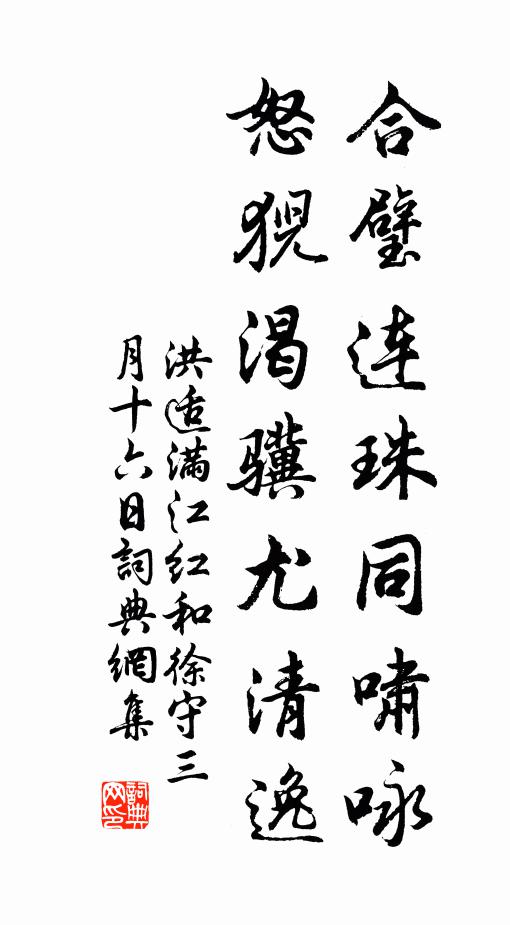 合璧连珠同啸咏
怒猊渴骥尤清逸
洪适满江红和徐守三
月十六日詞典網集
詞典网印